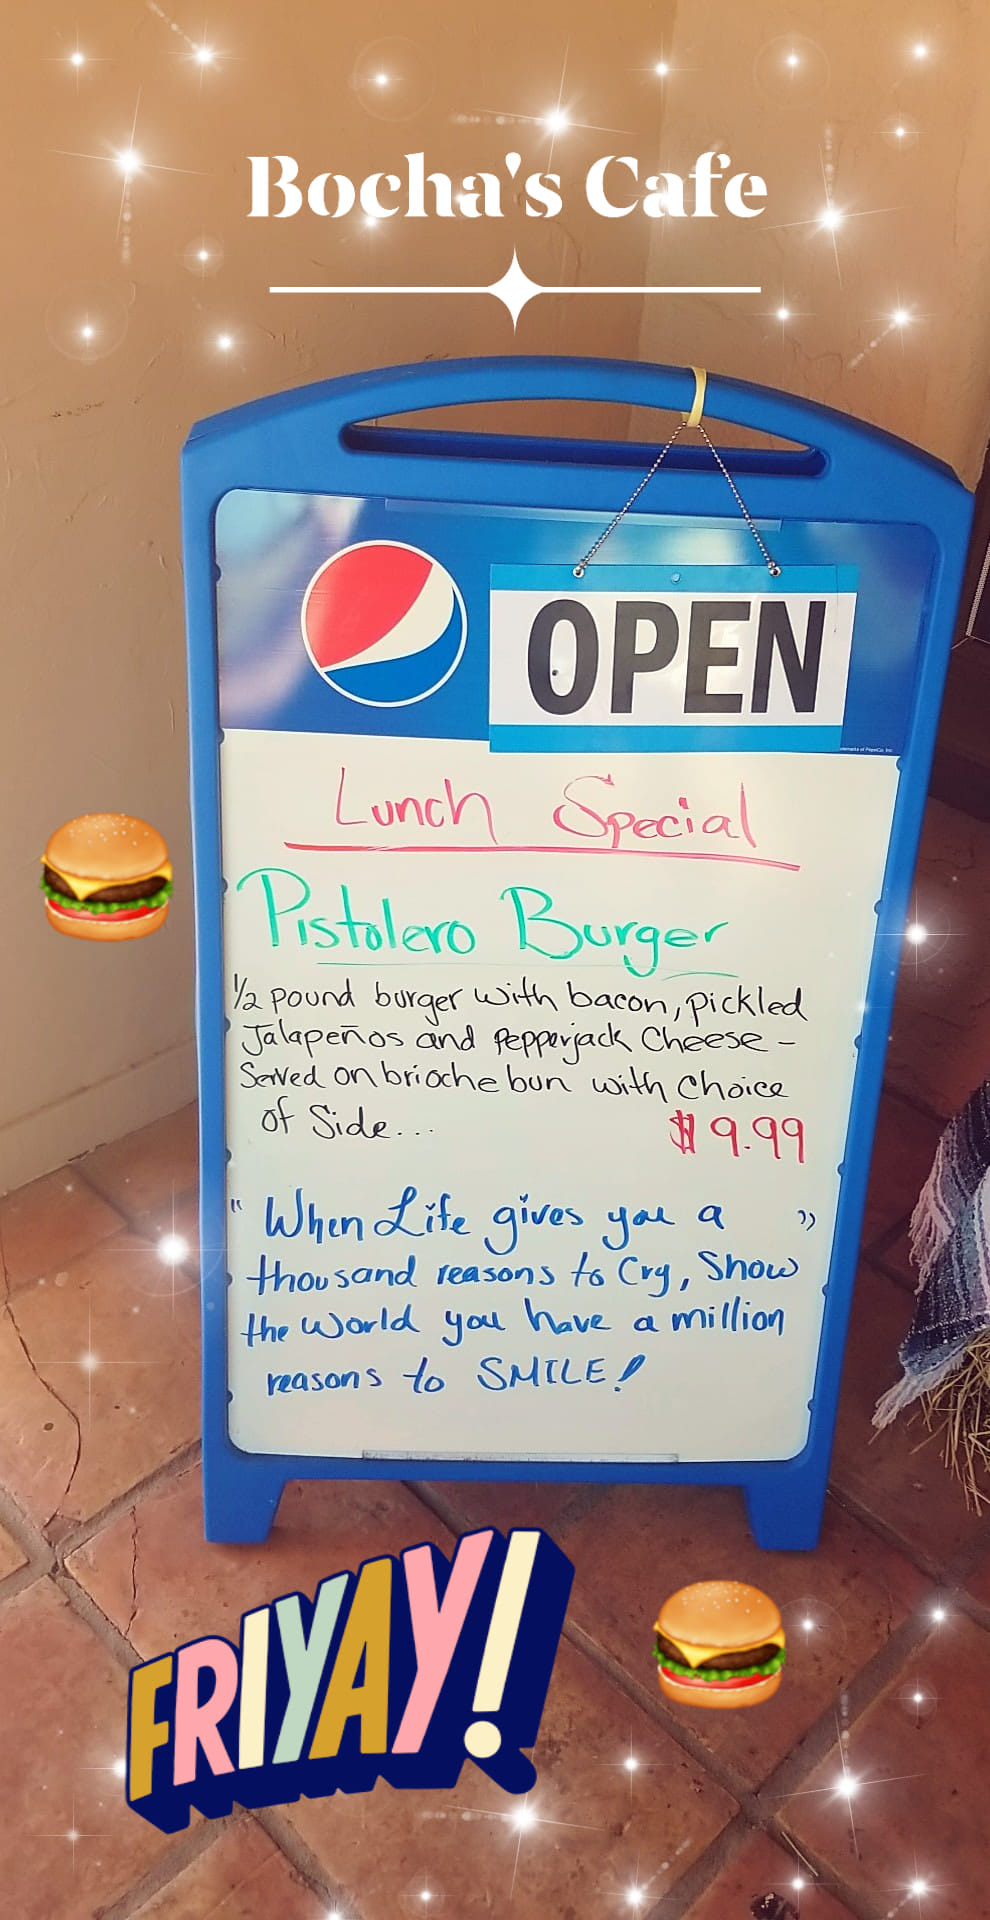 Bocha's Cafe
OPEN
Lunch Special
Pistolero Burger
1/2 pound burger with bacon, pickled
Jalapeños and Pepperjack Cheese -
Served on brioche bun with Choice
of Side... $9.99
"When Life gives you a "
thousand reasons to Cry, Show
the World you have a million
reasons to SMILE!
FRIYAY!